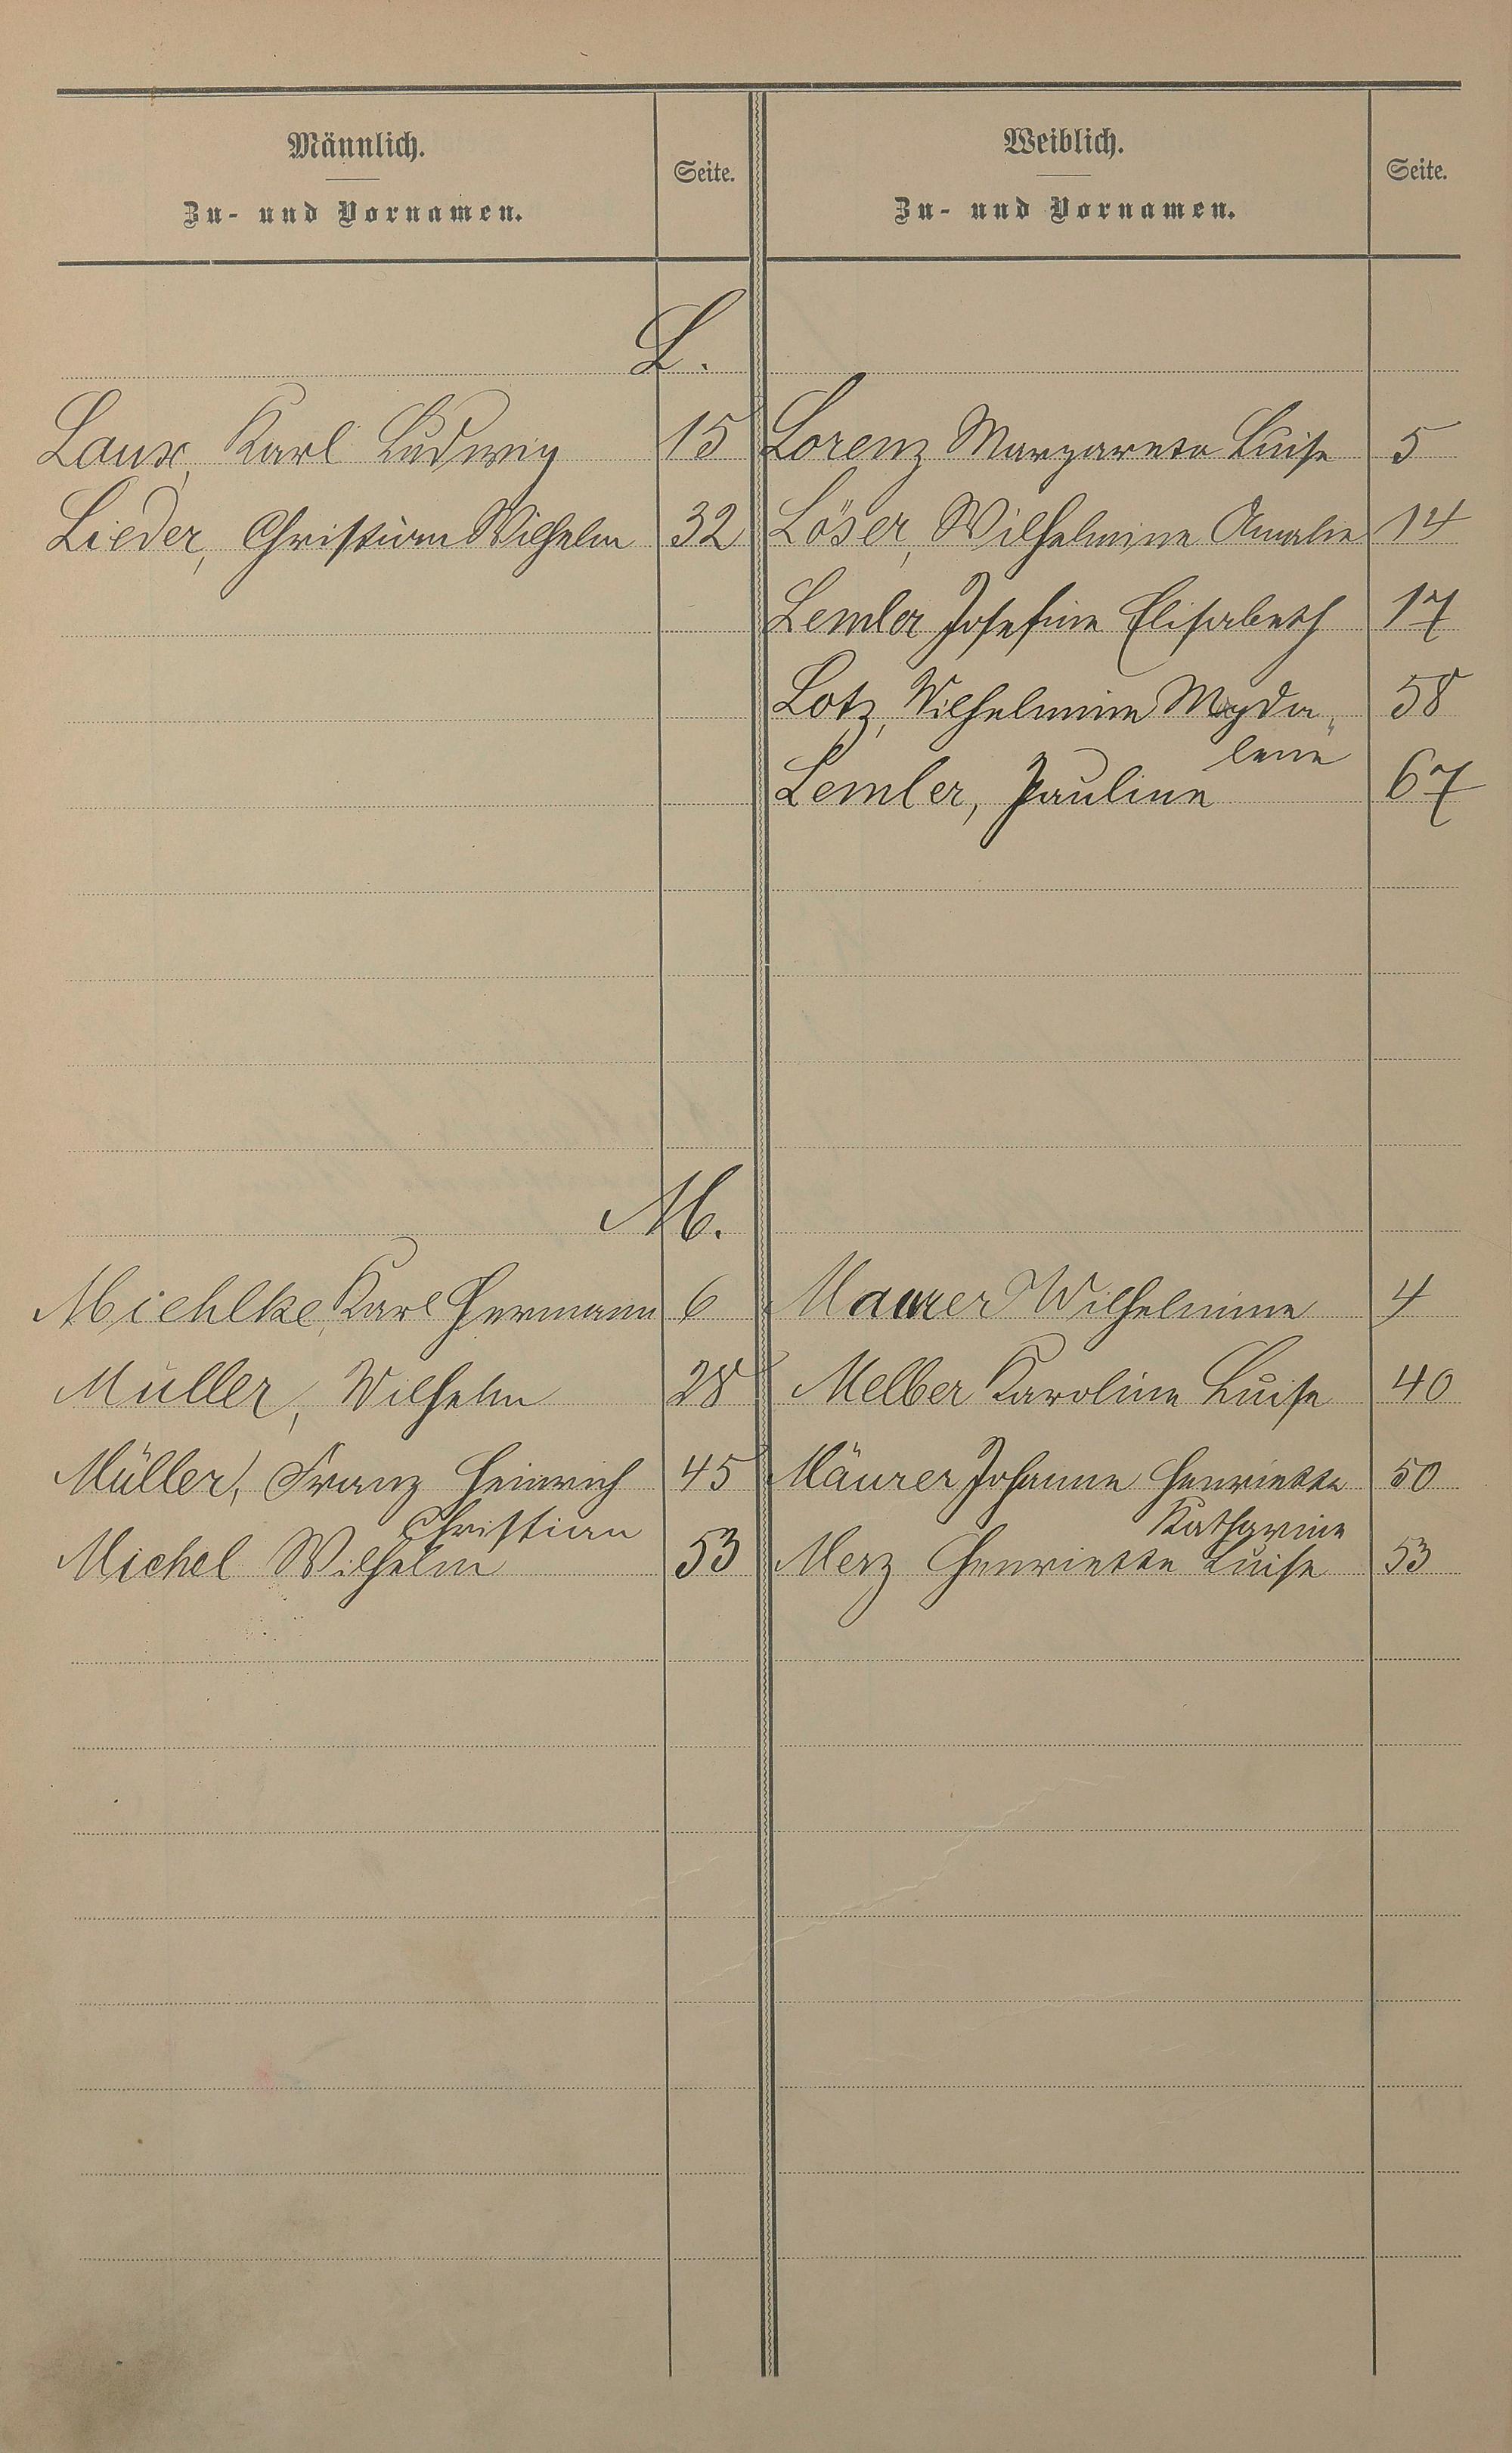 Männlich.
Zu- und Vornamen.
Seite.
Weiblich.
Zu- und Vornamen.
Seite.
L.
Laux, Karl Ludwig 15 Lorenz Margareta Luise 5
Lieder, Christian Wilhelm 32 Löser, Wilhelmine Amalie 14
Lemler Josefine Elisabeth 17
Lotz, Wilhelmine Magda„ 58
lene
Lemler, Pauline 67
M.
Miehlke, Karl Hermann 6 Maurer Wilhelmine 4
Müller, Wilhelm 28 Melber Karoline Luise 40
Müller, Franz Heinrich 45 Mäurer Johanne Henriette 50
Christian Katharine
Michel Wilhelm 53 Merz Henriette Luise 53